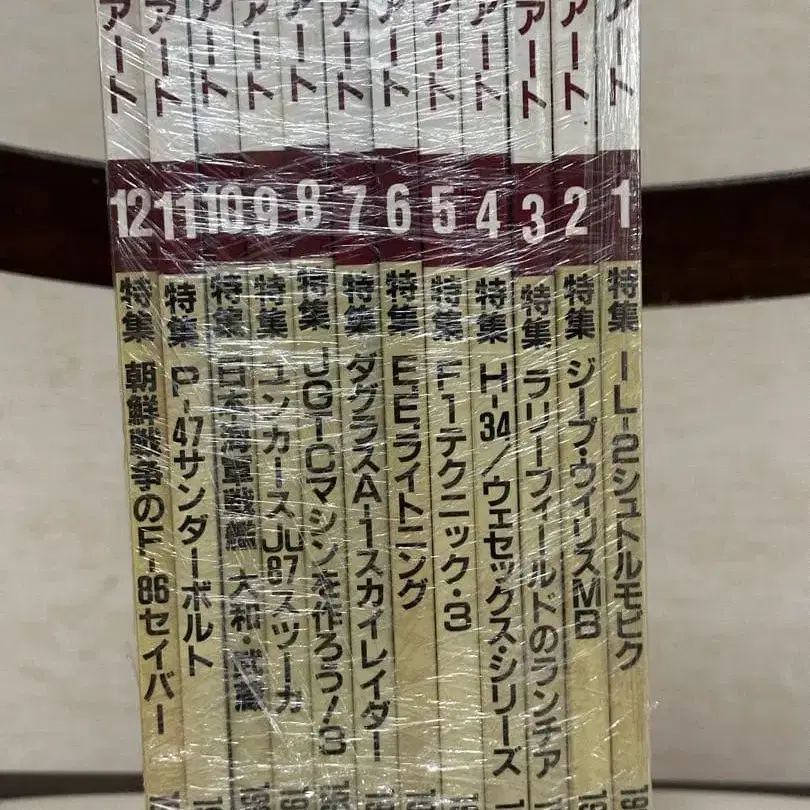 アート
12
特集
朝鮮戦争のF-86セイバー
アート
11
特集
P-47サンダーボルト
アート
10
特集
日本海軍戦艦 大和・武蔵
アート
9
特集
ユンカースJU87スツーカ
アート
8
特集
JGTCマシンを作ろう!3
アート
7
特集
ダグラスA-1スカイレイダー
アート
6
特集
E.E.ライトニング
アート
5
特集
F1テクニック・3
アート
4
特集
H-34/ウェセックス・シリーズ
アート
3
特集
ラリーフィールドのランチア
アート
2
特集
ジープ・ウイリスMB
アート
1
特集
IL-2シュトルモビク